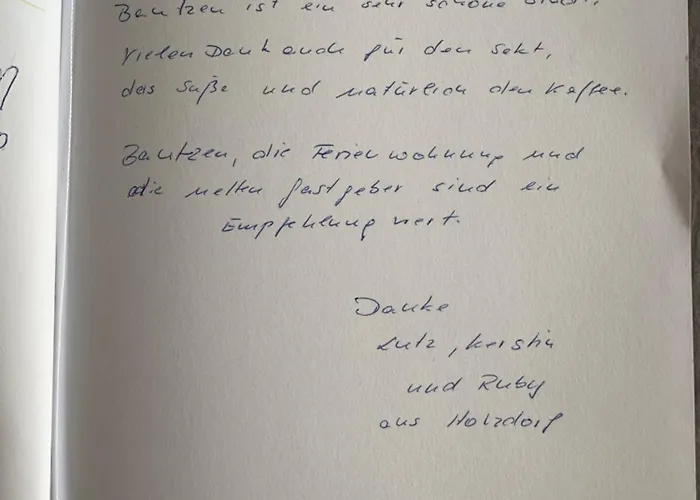 Bautzen ist ein sehr schöne
Vielen Dank auch für den Sekt,
das Süße und natürlich den Kaffee.
Bautzen, die Ferienwohnung und
die netten Gastgeber sind ein
Empfehlung wert.
Danke
Lutz, Kerstin
und Ruby
aus Holzdorf